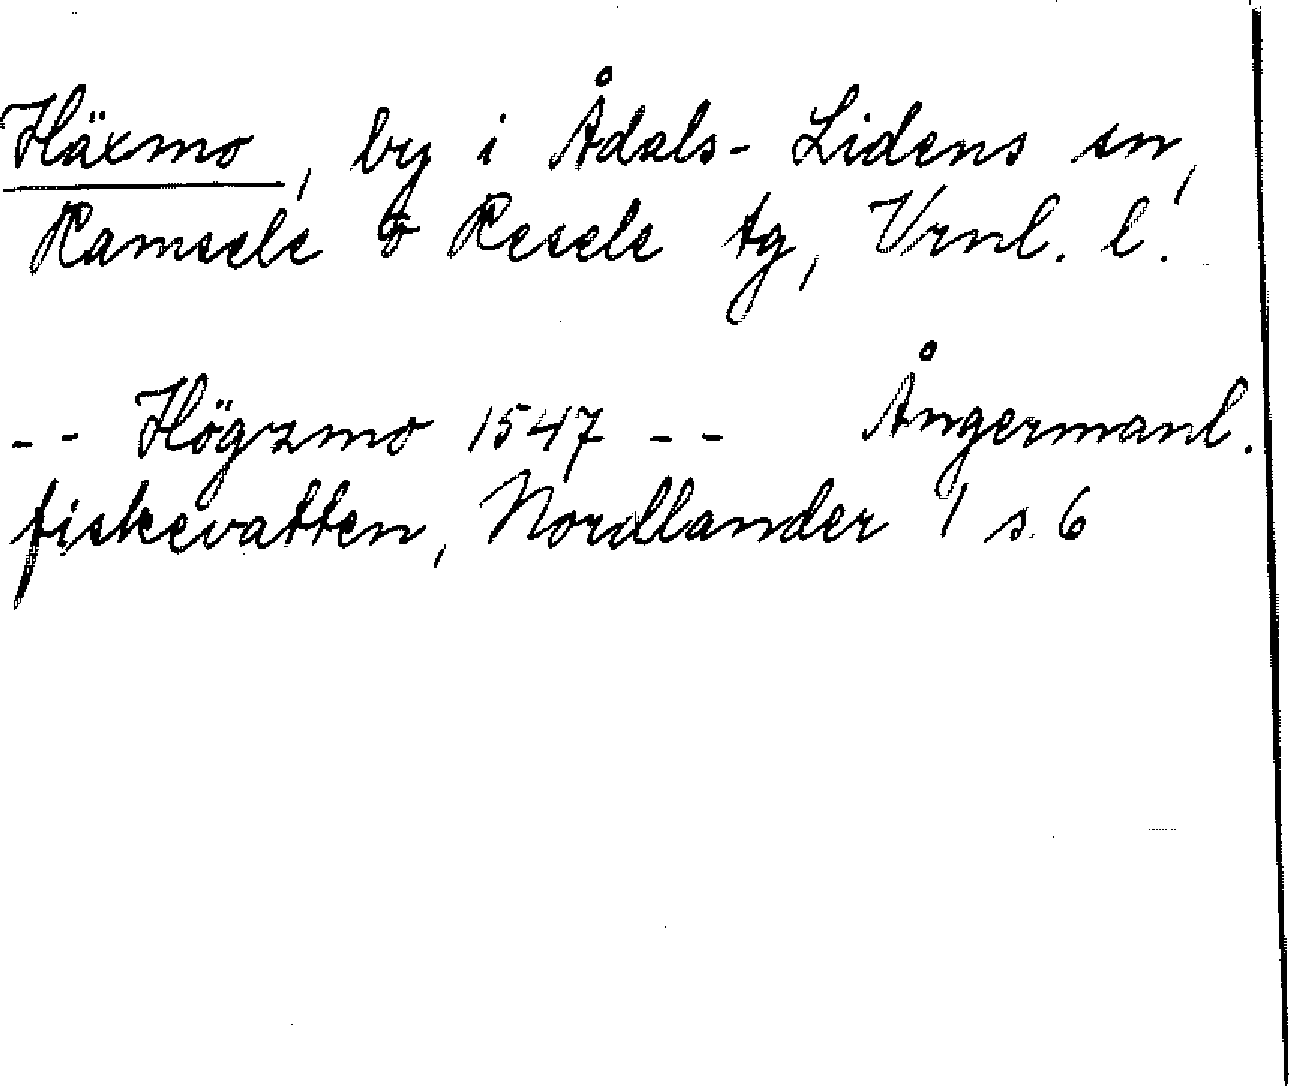 Häxmo, by i Ådals-Lidens sn,
Ramsele o Resele tg, Vrnl. l.
-- Högzmo 1547 -- Ångermanl.
fiskevatten, Nordlander 1 s. 6